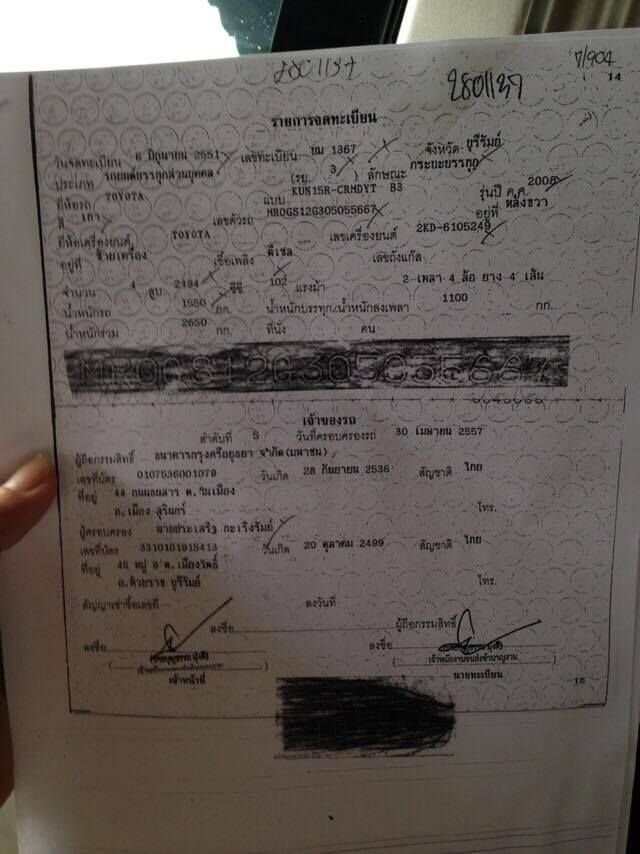 7/904
2801137 2801137
14
รายการจดทะเบียน
วันจดทะเบียน 6 มิถุนายน 2551 เลขทะเบียน บม 1367 จังหวัด บุรีรัมย์
ประเภท รถยนต์บรรทุกส่วนบุคคล (รย. 3) ลักษณะ กระบะบรรทุก
ยี่ห้อรถ TOYOTA แบบ KUN15R-CRMDYT B3 รุ่นปี ค.ศ. 2008
สี เทา เลขตัวรถ MR0GS12G305055667 อยู่ที่ หลังขวา
ยี่ห้อเครื่องยนต์ TOYOTA เลขเครื่องยนต์ 2KD-6105249
อยู่ที่ ซ้ายเครื่อง เชื้อเพลิง ดีเซล เลขถังแก๊ส
จำนวน 4 สูบ 2494 ซีซี 102 แรงม้า 2 เพลา 4 ล้อ ยาง 4 เส้น
น้ำหนักรถ 1550 กก. น้ำหนักบรรทุก/น้ำหนักลงเพลา 1100 กก.
น้ำหนักรวม 2650 กก. ที่นั่ง คน
MR0GS12G305055667
เจ้าของรถ
ลำดับที่ 5 วันที่ครอบครองรถ 30 เมษายน 2557
ผู้ถือกรรมสิทธิ์ ธนาคารกรุงศรีอยุธยา จำกัด(มหาชน)
เลขที่บัตร 0107536001079 วันเกิด 28 กันยายน 2536 สัญชาติ ไทย
ที่อยู่ 44 ถนนธนสาร ต.ในเมือง
อ.เมือง สุรินทร์ โทร.
ผู้ครอบครอง นายประเสริฐ กะเริงรัมย์
เลขที่บัตร 3310101915413 วันเกิด 20 ตุลาคม 2499 สัญชาติ ไทย
ที่อยู่ 46 หมู่ ต.เมืองโพธิ์
อ.ห้วยราช บุรีรัมย์ โทร.
สัญญาเช่าซื้อเลขที่ ลงวันที่
ลงชื่อ ผู้ถือกรรมสิทธิ์
ลงชื่อ ลงชื่อ
เจ้าพนักงานขนส่งชำนาญงาน เจ้าพนักงานขนส่งชำนาญงาน
เจ้าหน้าที่ นายทะเบียน